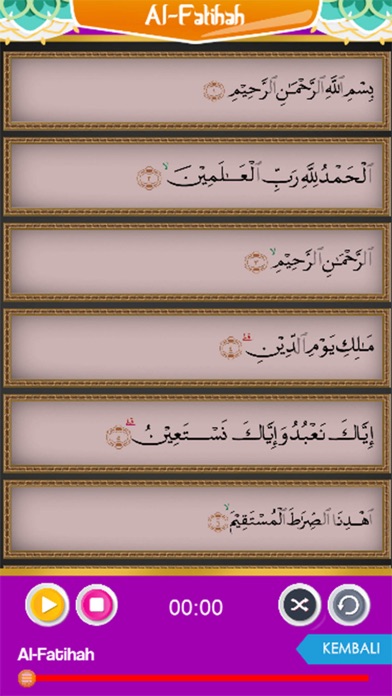 Al-Fatihah
بِسْمِ ٱللَّهِ ٱلرَّحْمَـٰنِ ٱلرَّحِيمِ ١
ٱلْحَمْدُ لِلَّهِ رَبِّ ٱلْعَـٰلَمِينَ ٢
ٱلرَّحْمَـٰنِ ٱلرَّحِيمِ ٣
مَـٰلِكِ يَوْمِ ٱلدِّينِ ٤
إِيَّاكَ نَعْبُدُ وَإِيَّاكَ نَسْتَعِينُ ٥
ٱهْدِنَا ٱلصِّرَٰطَ ٱلْمُسْتَقِيمَ ٦
00:00
KEMBALI
Al-Fatihah